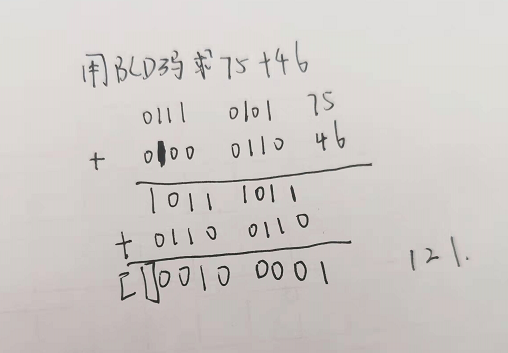 用BCD码求75+46
0111 0101 75
+ 0100 0110 46
1011 1011
+ 0110 0110
[1]0010 0001 121.